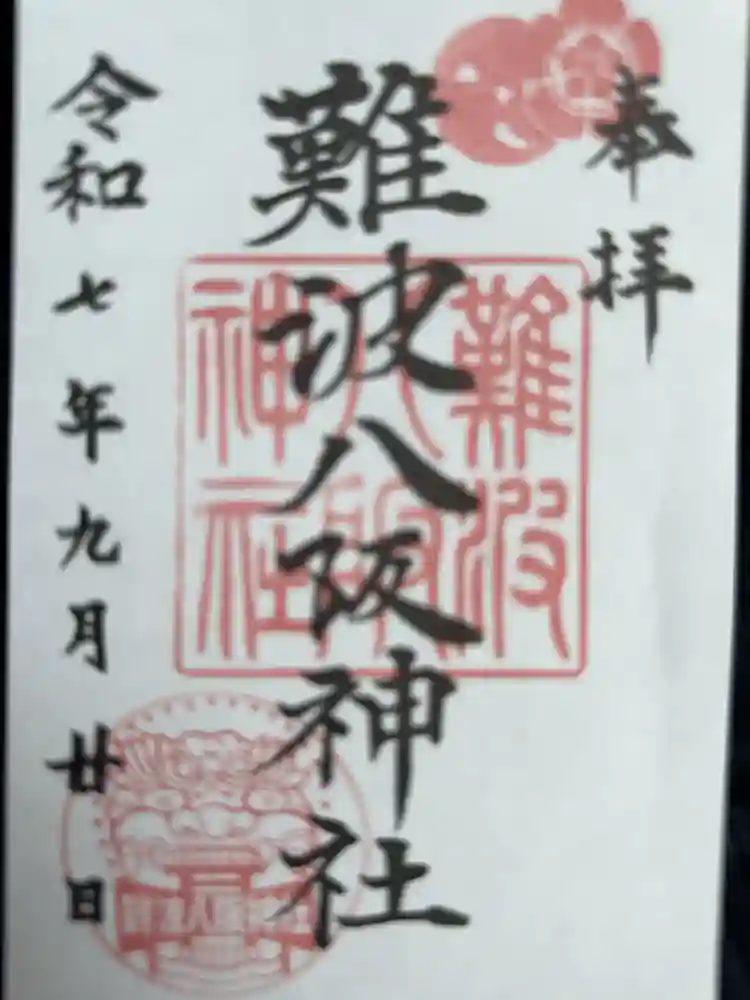 奉拝
難波八阪神社
難波
八阪
神社
令和七年九月廿日